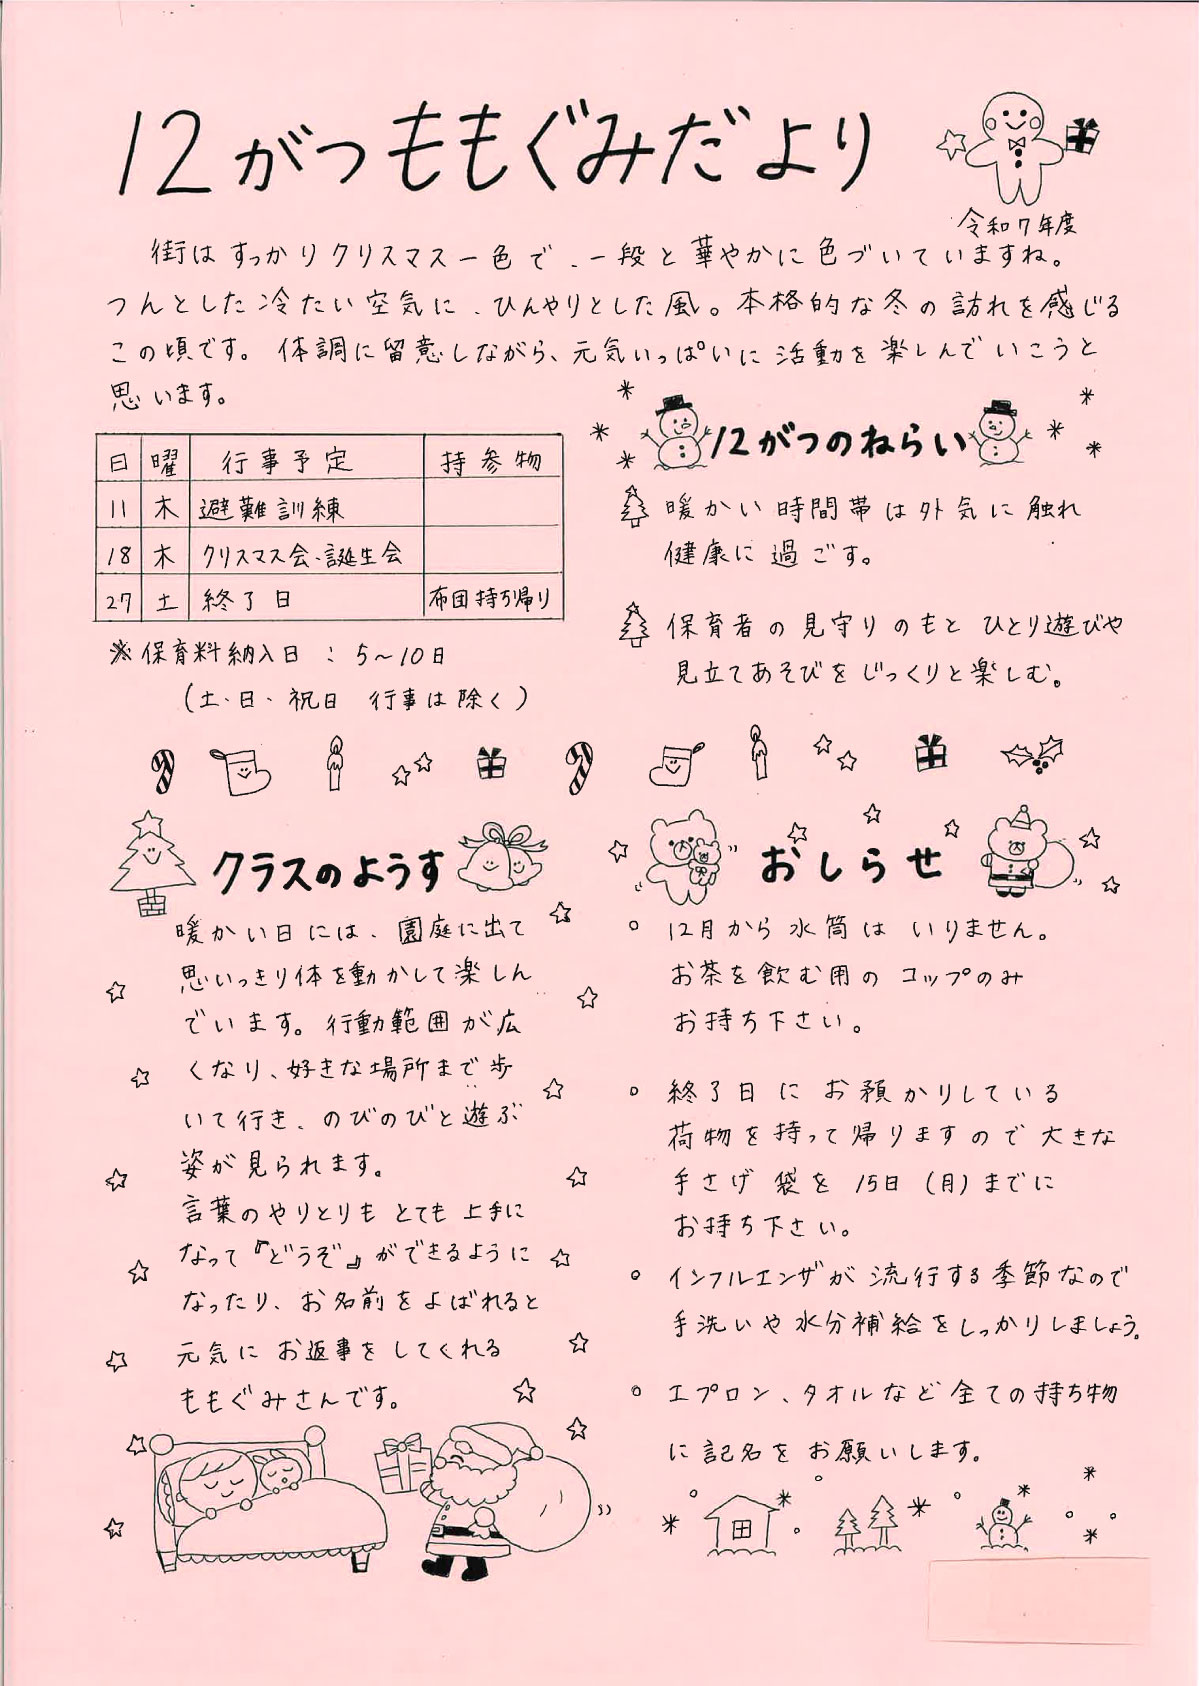 12がつももぐみだより
令和7年度
街はすっかりクリスマス一色で、一段と華やかに色づいていますね。
つんとした冷たい空気に、ひんやりとした風。本格的な冬の訪れを感じる
この頃です。体調に留意しながら、元気いっぱいに活動を楽しんでいこうと
思います。
日 曜 行事予定 持参物
11 木 避難訓練
18 木 クリスマス会・誕生会
27 土 終了日 布団持ち帰り
※保育料納入日：5〜10日
(土・日・祝日 行事は除く)
12がつのねらい
暖かい時間帯は外気に触れ
健康に過ごす。
保育者の見守りのもと ひとり遊びや
見立てあそびをじっくりと楽しむ。
クラスのようす
暖かい日には、園庭に出て
思いっきり体を動かして楽しん
でいます。行動範囲が広
くなり、好きな場所まで歩
いて行き、のびのびと遊ぶ
姿が見られます。
言葉のやりとりもとても上手に
なって『どうぞ』ができるように
なったり、お名前をよばれると
元気にお返事をしてくれる
ももぐみさんです。
おしらせ
○ 12月から水筒はいりません。
お茶を飲む用のコップのみ
お持ち下さい。
○ 終了日にお預かりしている
荷物を持って帰りますので大きな
手さげ袋を15日(月)までに
お持ち下さい。
○ インフルエンザが流行する季節なので
手洗いや水分補給をしっかりしましょう。
○ エプロン、タオルなど全ての持ち物
に記名をお願いします。